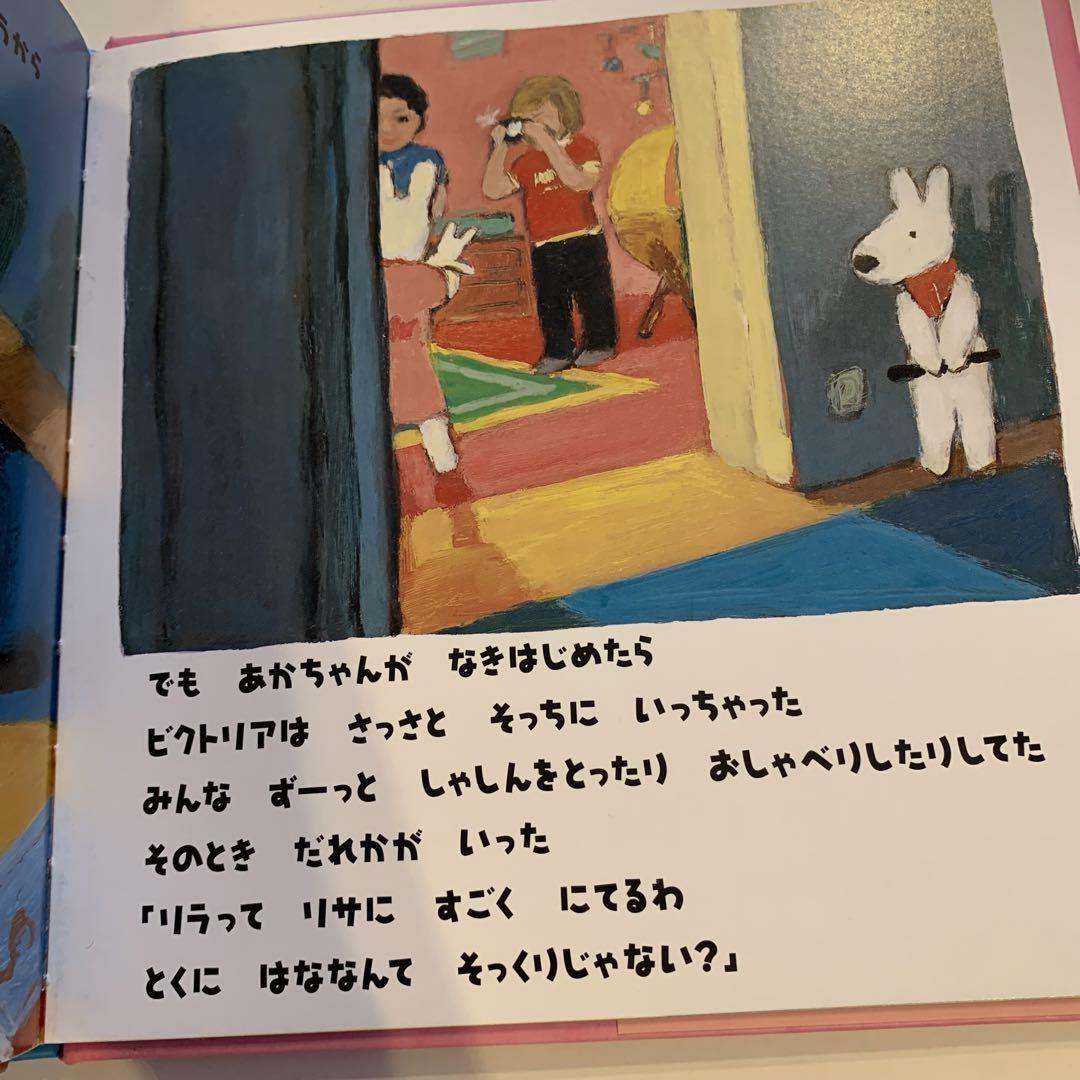 うから
でも　あかちゃんが　なきはじめたら
ビクトリアは　さっさと　そっちに　いっちゃった
みんな　ずーっと　しゃしんをとったり　おしゃべりしたりしてた
そのとき　だれかが　いった
「リラって　リサに　すごく　にてるわ
とくに　はななんて　そっくりじゃない？」